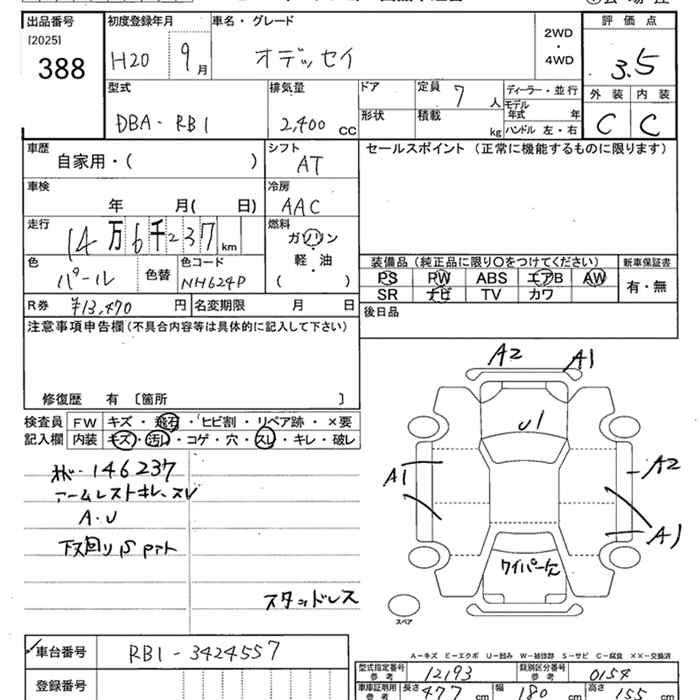 出品番号
[2025]
388
初度登録年月
H20 9月
車名・グレード
オデッセイ
2WD
・
4WD
評価点
3.5
外装 内装
C C
型式
DBA-RB1
排気量
2,400 CC
ドア
形状
定員 7 人
積載 kg
ディーラー・並行
モデル年式 年
ハンドル 左・右
車歴
自家用・( )
シフト
AT
セールスポイント (正常に機能するものに限ります)
車検
年 月( 日)
冷房
AAC
走行
14万6千237 km
燃料
ガソリン
・
軽・油
( )
色
パール
色替
色コード
NH624P
装備品 (純正品に限り〇をつけてください)
PS PW ABS エアB AW
SR ナビ TV カワ
新車保証書
有・無
R券 ¥13,470 円
名変期限 月 日
後日品
注意事項申告欄 (不具合内容等は具体的に記入して下さい)
修復歴 有 〔箇所 〕
検査員
記入欄
FW キズ・飛石・ヒビ割・リペア跡・×要
内装 キズ・汚れ・コゲ・穴・スレ・キレ・破レ
146237
アームレストキレ、スレ
A・U
下回りS
スタッドレス
A2 A1
U1
A1
A2
A1
ワイパー欠
スペア
A-キズ E-エクボ U-凹み W-補修跡 S-サビ C-腐食 XX-交換済
車台番号 RB1-3424557
登録番号
型式指定番号
参考
12193
類別区分番号
参考
0154
車庫証明用
参考
長さ 477 cm
幅 180 cm
高さ 155 cm